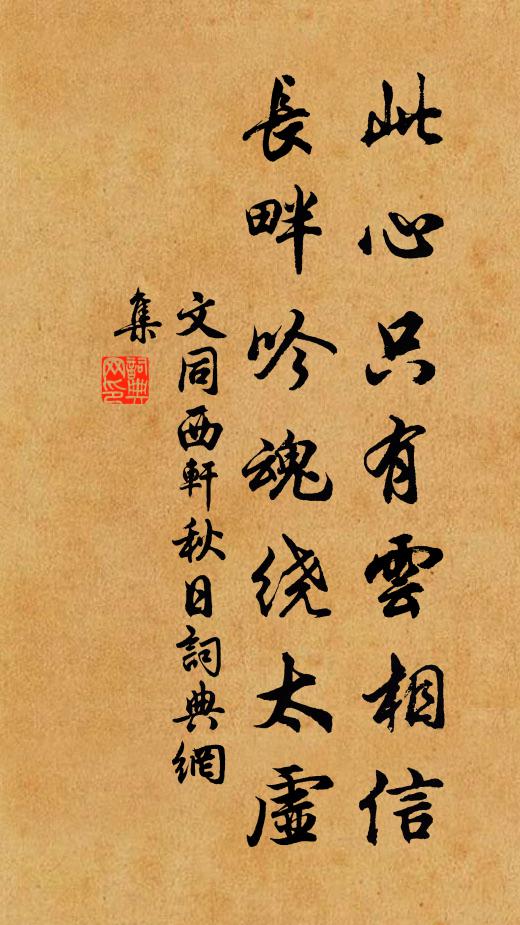 此心只有雲相信
長畔吟魂绕太虛
文同西軒秋日詞典網
集
詞典網印